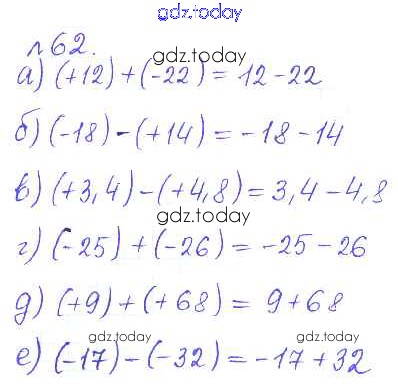 gdz.today
№62.
gdz.today
а) (+12) + (-22) = 12 - 22
gdz.today
б) (-18) - (+14) = -18 - 14
в) (+3,4) - (+4,8) = 3,4 - 4,8
gdz.today
г) (-25) + (-26) = -25 - 26
д) (+9) + (+68) = 9 + 68
gdz.today
gdz.today
е) (-17) - (-32) = -17 + 32